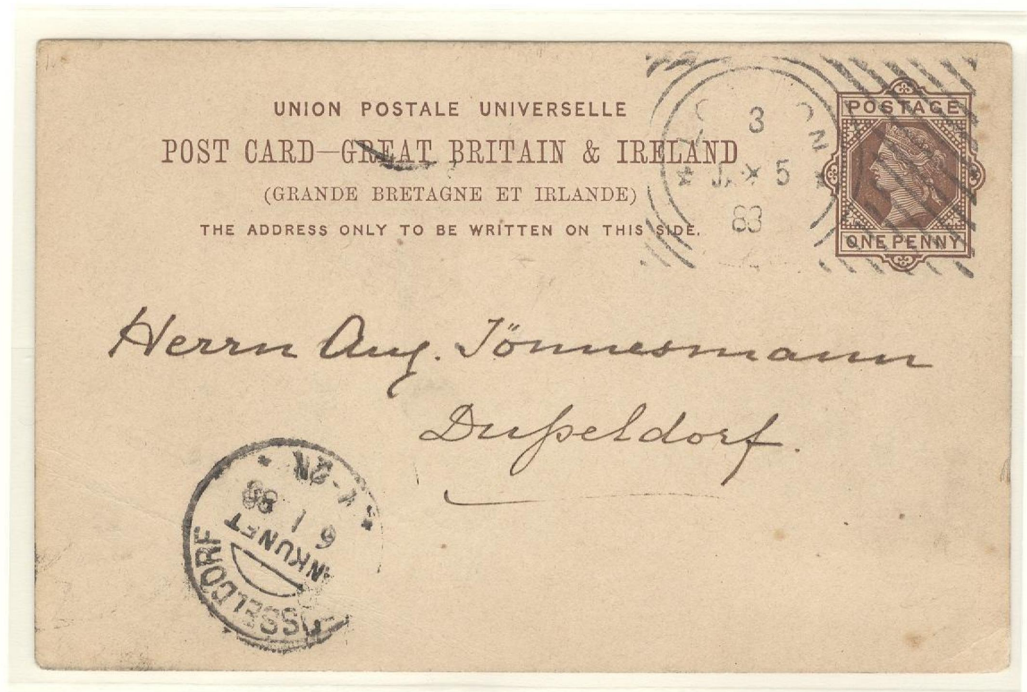 UNION POSTALE UNIVERSELLE
POST CARD—GREAT BRITAIN & IRELAND
(GRANDE BRETAGNE ET IRLANDE)
THE ADDRESS ONLY TO BE WRITTEN ON THIS SIDE.
3
5
83
POSTAGE
ONE PENNY
Herrn Aug. Tönnesmann
Dußeldorf.
ANKUNFT
6 1 88